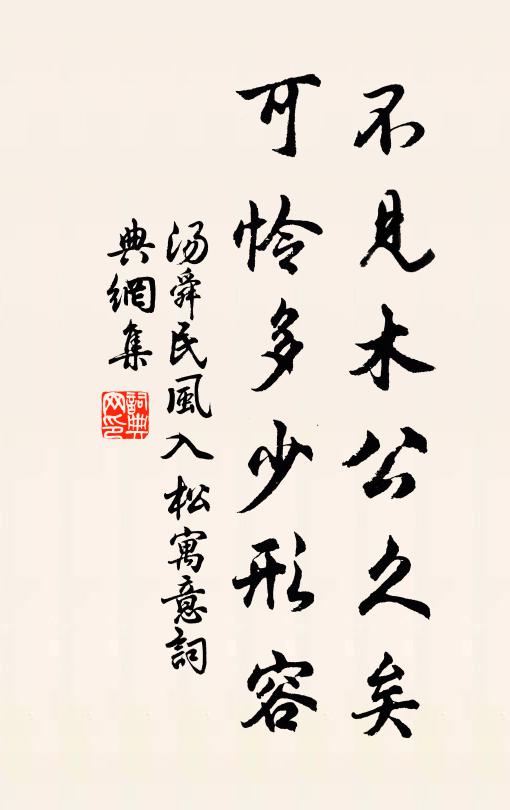 不見木公久矣
可憐多少形容
湯舜民風入松寓意詞
典網集
詞典网印